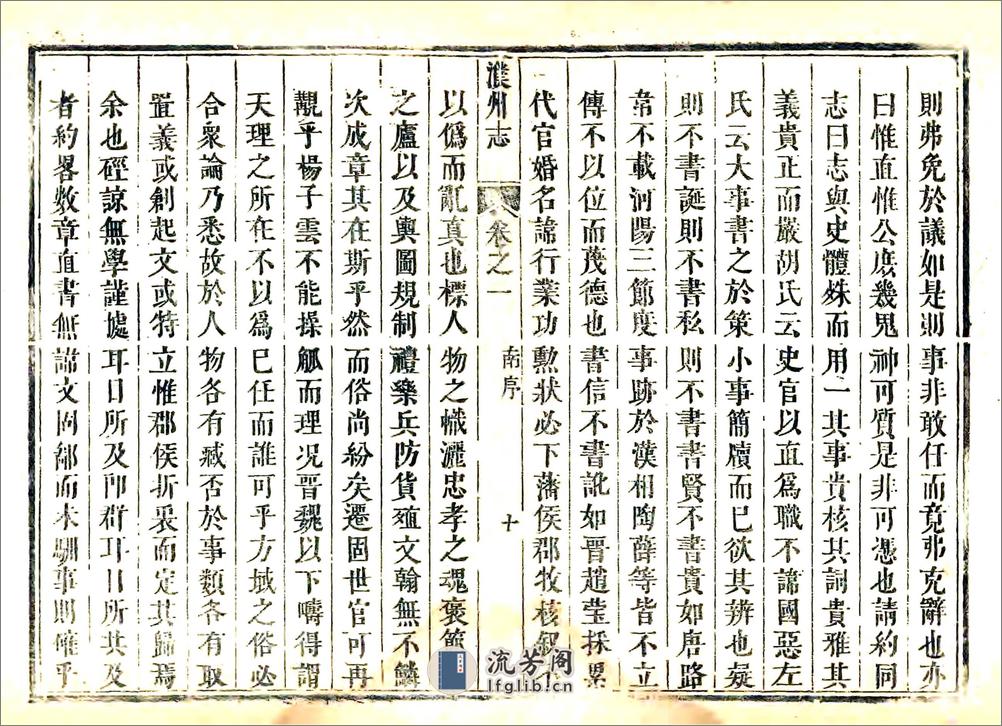 則弗免於議如是則事非敢任而竟弗克辭也亦
曰惟直惟公庶幾鬼神可質是非可憑也請約同
志曰志與史體殊而用一其事貴核其詞貴雅其
義貴正而嚴胡氏云史官以直爲職不諦國惡左
氏云大事書之於策小事簡牘而已欲其辨也疑
則不書誕則不書私則不書書賢不書貴如唐路
韋不載河陽三節度事跡於漢相陶薛等皆不立
傳不以位而茂德也書信不書訛如晉趙瑩採累
代官婚名諦行業功勲狀必下藩侯郡牧核叙
濮州志
卷之一
南序
十
以僞而亂真也標人物之幟灑忠孝之魂褒節
之廬以及輿圖規制禮樂兵防貨殖文翰無不鱗
次成章其在斯乎然而俗尚紛矣遷固世官可再
覯乎楊子雲不能操觚而理况晉魏以下疇得謂
天理之所在不以爲已任而誰可乎方域之俗必
合衆論乃悉故於人物各有臧否於事類各有取
置義或創起文或特立惟郡侯折衷而定其歸焉
余也硜諒無學謹攄耳目所及卽群耳目所共及
者約畧数章直書無諦文固鄙而未馴事則確乎
流芳阁
lfglib.cn